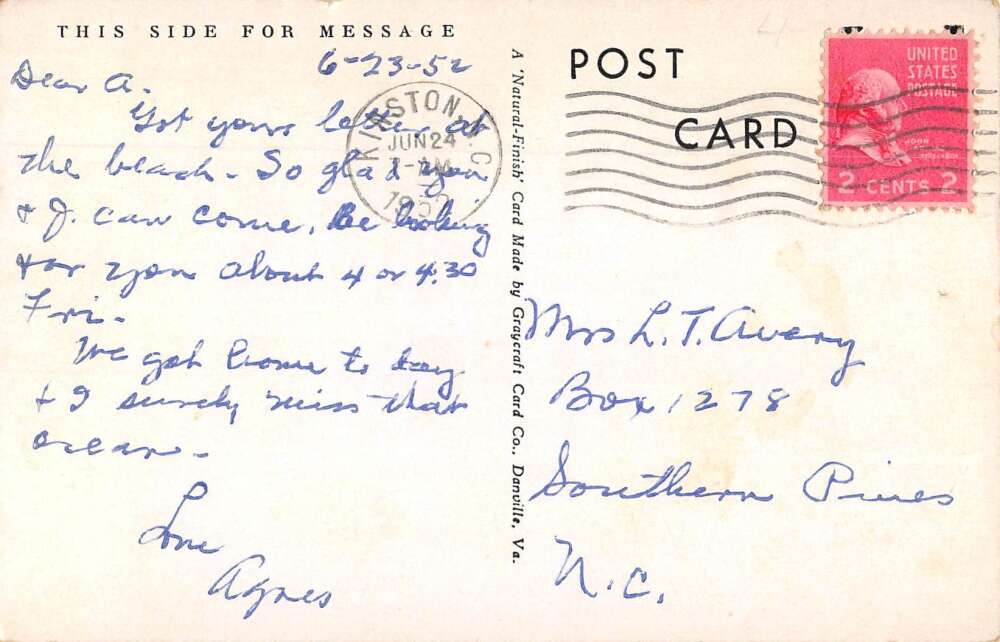 THIS SIDE FOR MESSAGE
6-23-52
Dear A.
Got your letter at
the beach - So glad you
& J. can come. Be looking
for you about 4 or 4:30
Fri.
We got home to day
& I surely miss that
ocean -
Love
Agnes
KINSTON, N.C.
JUN 24
1952
A 'Natural-Finish' Card Made by Graycraft Card Co., Danville, Va.
POST
CARD
UNITED
STATES
POSTAGE
JOHN
2 CENTS 2
Mrs L. T. Avery
Box 1278
Southern Pines
N.C.